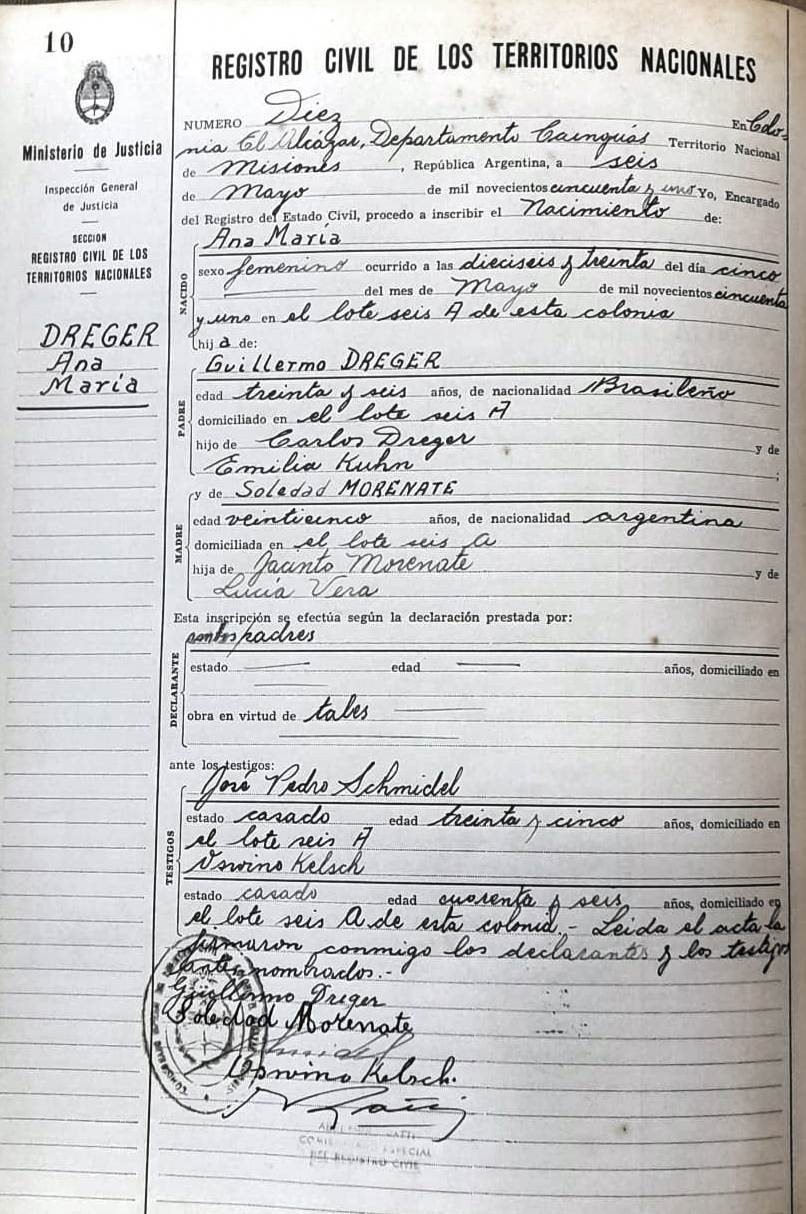 10
Ministerio de Justicia
Inspección General
de Justicia
SECCION
REGISTRO CIVIL DE LOS
TERRITORIOS NACIONALES
DREGER
Ana
María
REGISTRO CIVIL DE LOS TERRITORIOS NACIONALES
NUMERO Diez En Colo-
nia El Alcázar, Departamento Cainguás Territorio Nacional
de Misiones, República Argentina, a seis
de Mayo de mil novecientos cincuenta y uno Yo, Encargado
del Registro del Estado Civil, procedo a inscribir el Nacimiento de:
NACIDO
Ana María
sexo femenino ocurrido a las dieciseis y treinta del día cinco
del mes de Mayo de mil novecientos cincuenta
y uno en el lote seis A de esta colonia
hija de:
PADRE
Guillermo DREGER
edad treinta y seis años, de nacionalidad Brasileño
domiciliado en el lote seis A
hijo de Carlos Dreger y de
Emilia Kuhn ;
MADRE
y de Soledad MORENATE
edad veinticinco años, de nacionalidad argentina
domiciliada en el lote seis A
hija de Jacinto Morenate y de
Lucía Vera
Esta inscripción se efectúa según la declaración prestada por:
DECLARANTE
ambos padres
estado edad años, domiciliado en
obra en virtud de tales
ante los testigos:
TESTIGOS
José Pedro Schmidel
estado casado edad treinta y cinco años, domiciliado en
el lote seis A
Oswino Kelsch
estado casado edad cuarenta y seis años, domiciliado en
el lote seis A de esta colonia.- Leida el acta la
firmaron conmigo los declarantes y los testigos
antes nombrados.-
Guillermo Dreger
Soledad Morenate
Oswino Kelsch.
ESPECIAL
DEL REGISTRO CIVIL